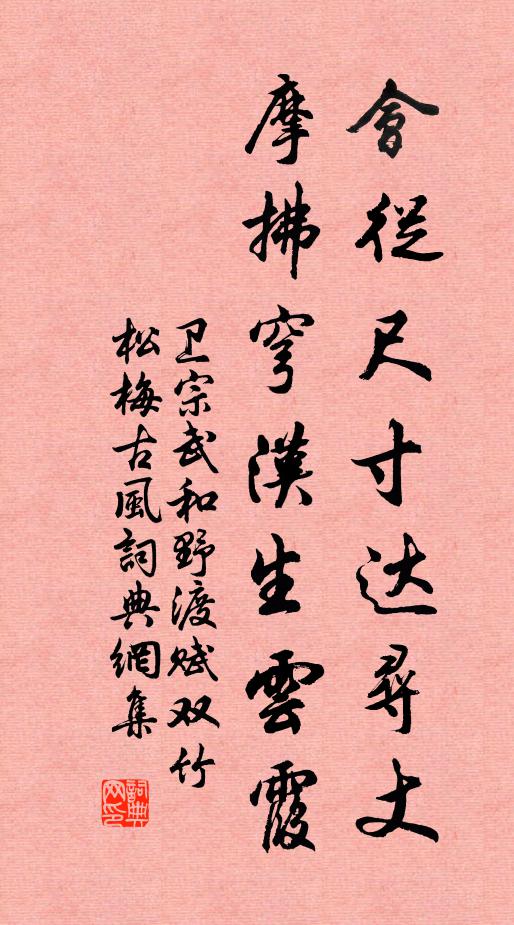 會從尺寸达尋丈
摩拂穹漢生雲霞
卫宗武和野渡赋双竹
松梅古風詞典網集
詞典网印